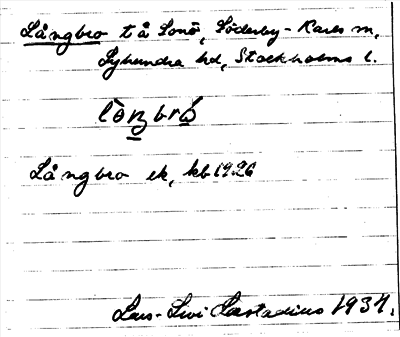 Långbro t å Lonö, Söderby-Karls sn,
Lyhundra hd, Stockholms l.
Långbro ek, kb 1926
Lars-Levi Læstadius 1934.